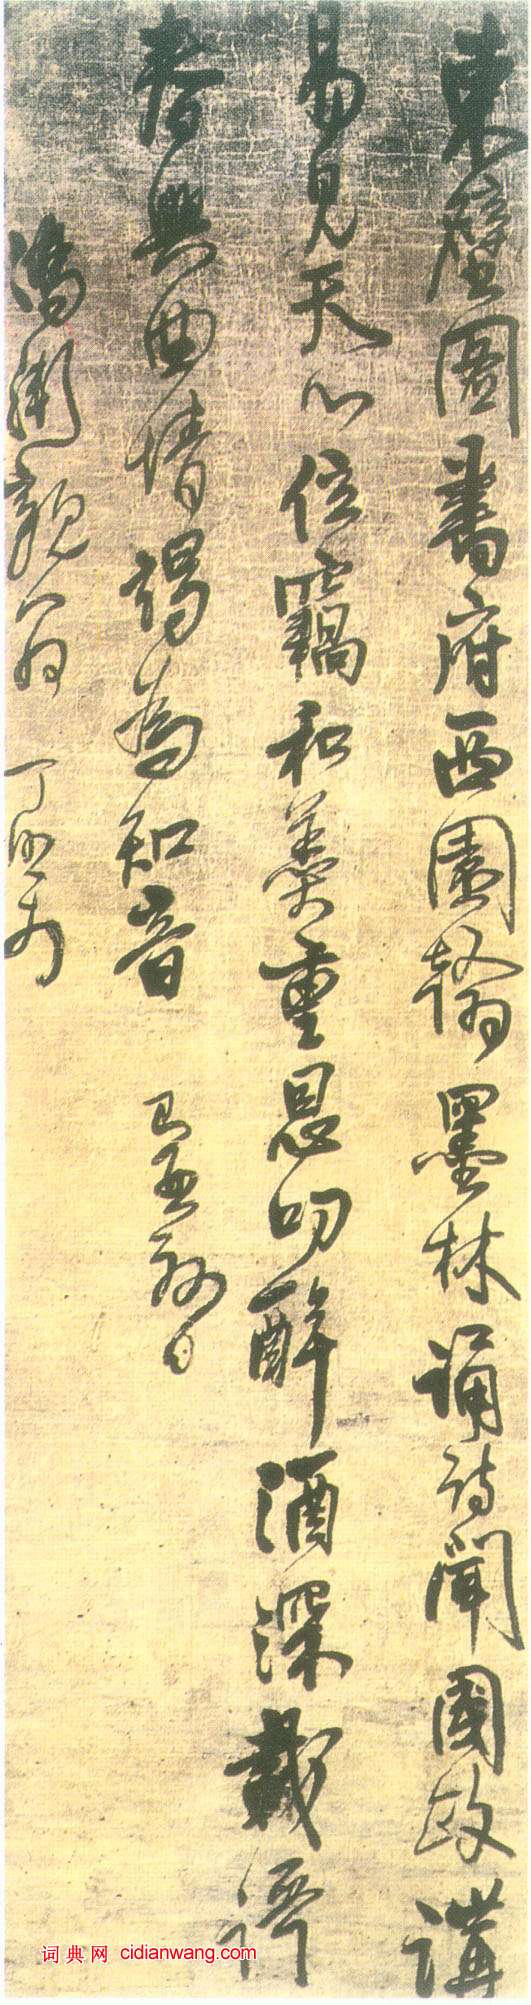 東壁圖書府西園翰墨林誦詩聞國政講
易見天心位竊和羹重恩叨醉酒深載
春興曲情竭為知音
親翁
词典网 cidianwang.com